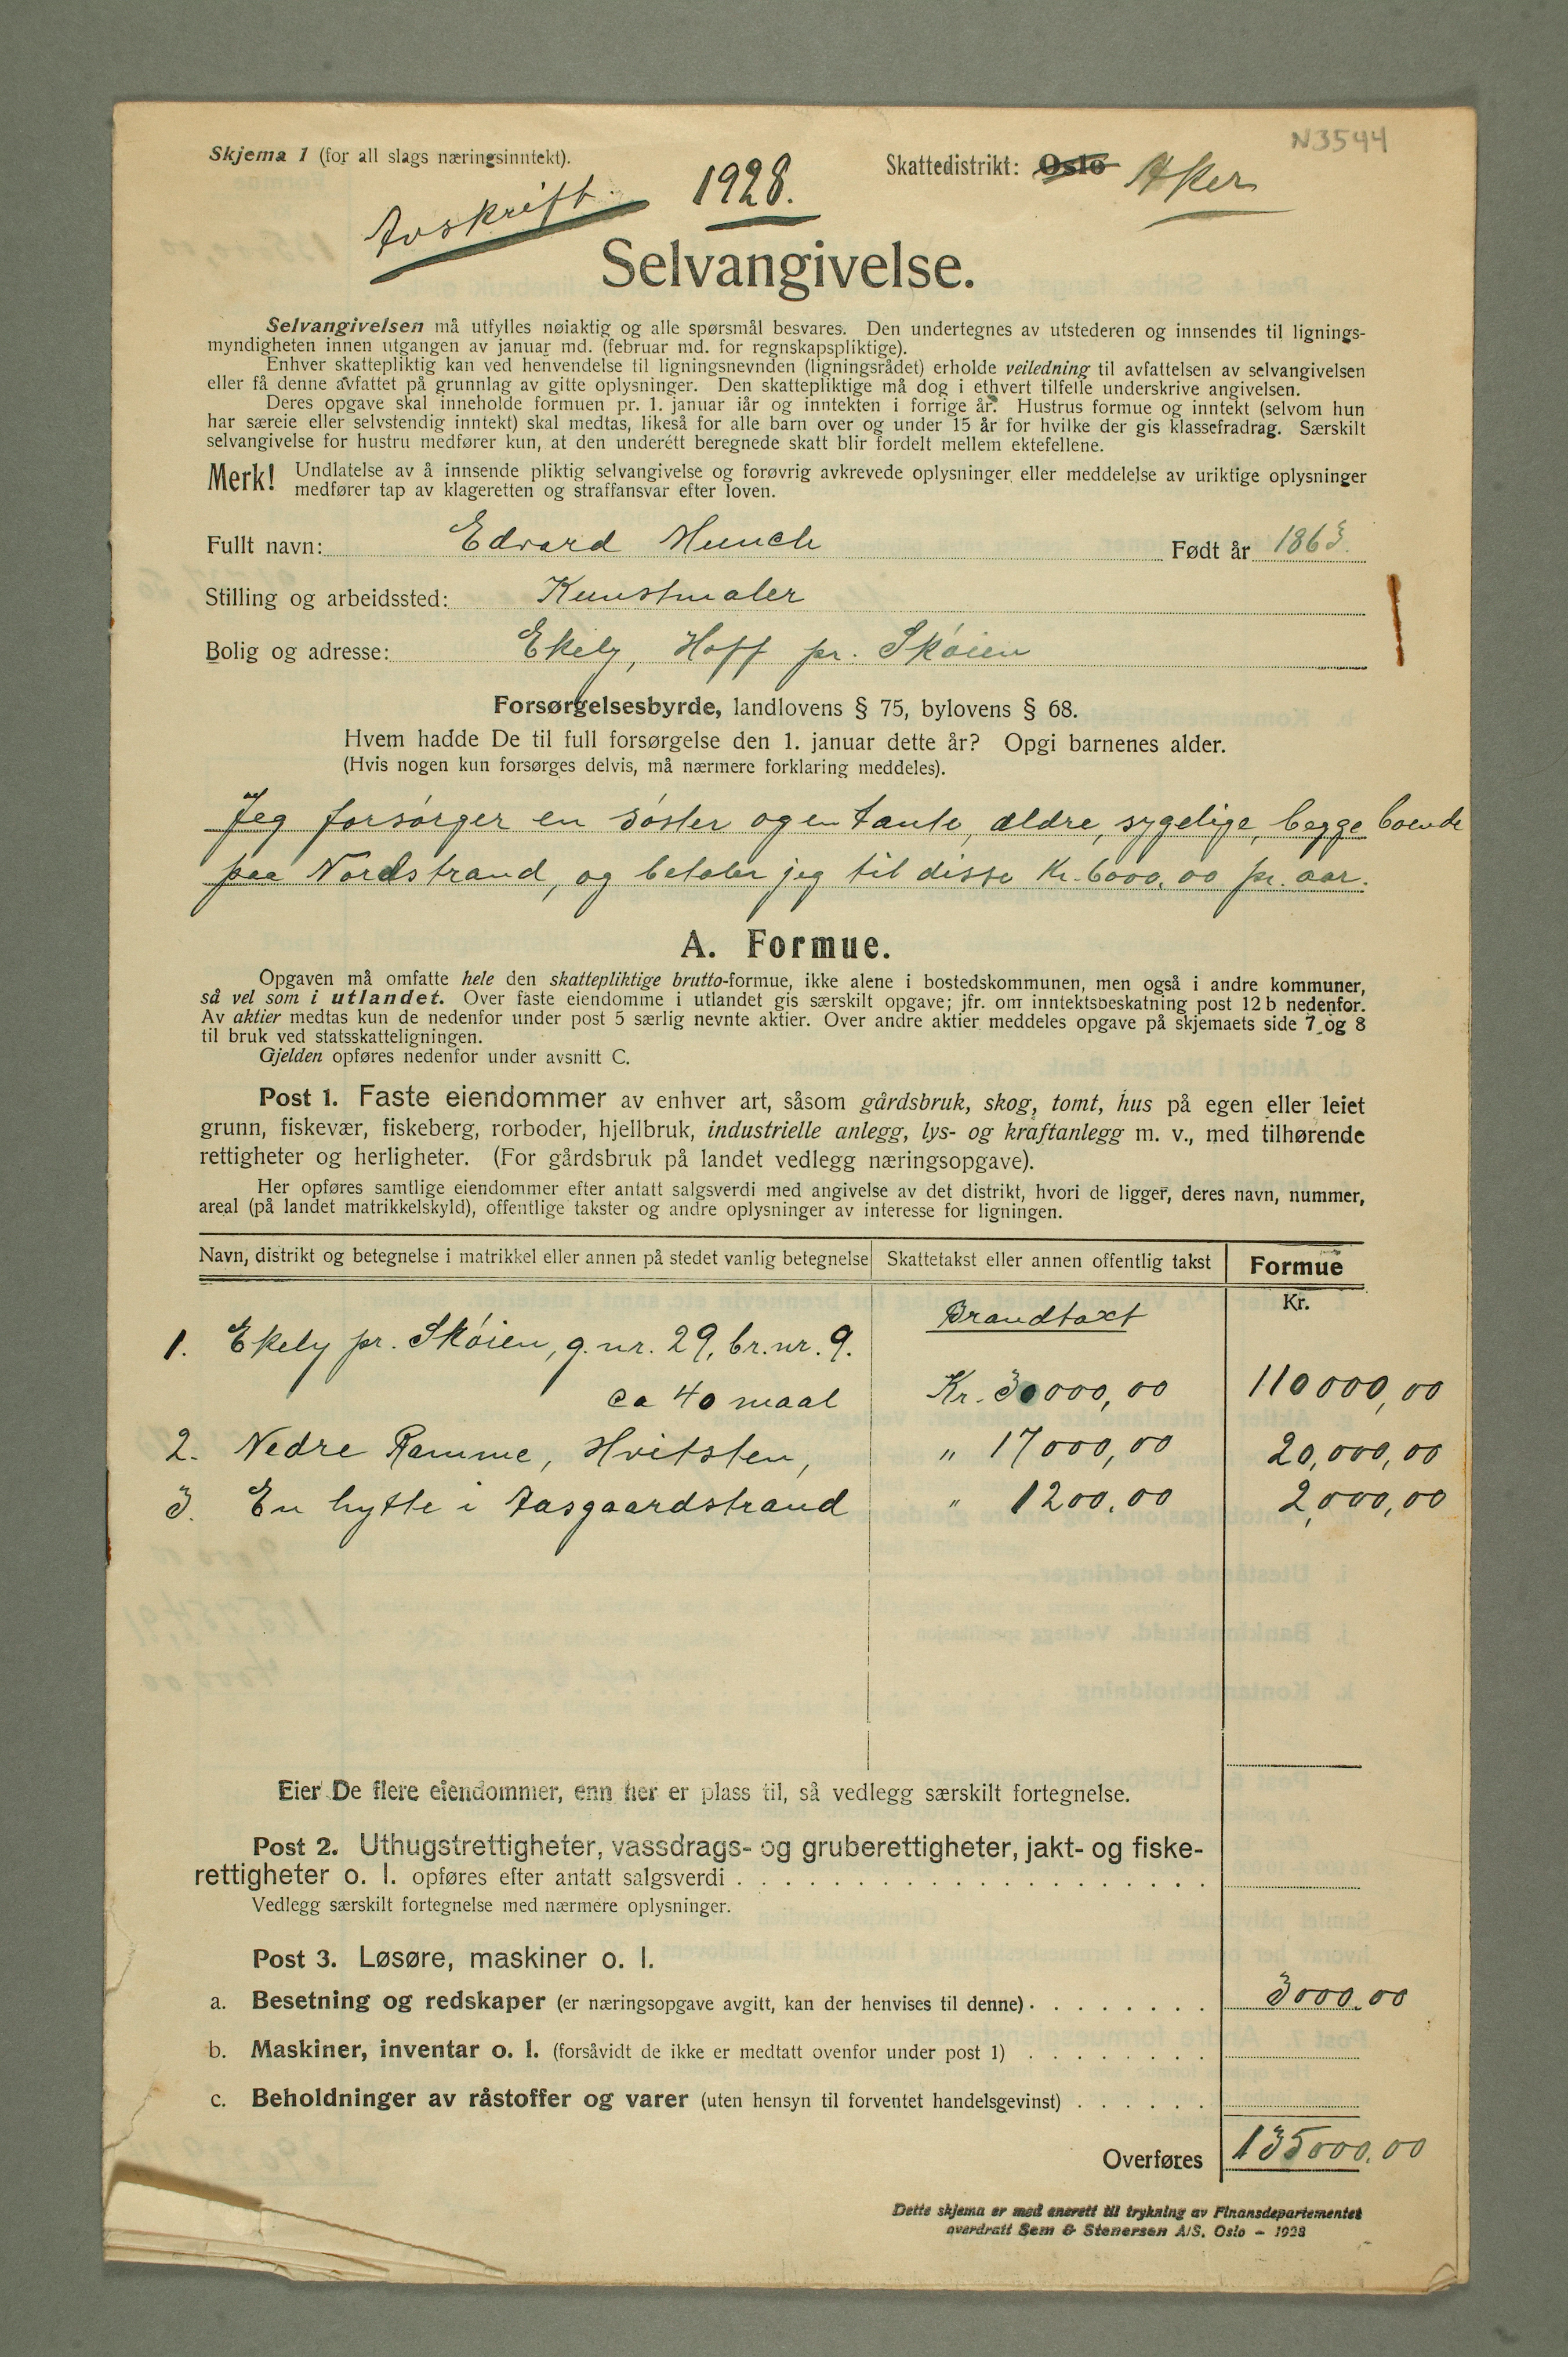 N3544
Skjema 1 (for all slags næringsinntekt).
Skattedistrikt: Oslo Aker
Avskrift.
1928.
Selvangivelse.
Selvangivelsen må utfylles nøiaktig og alle spørsmål besvares. Den undertegnes av utstederen og innsendes til lignings-
myndigheten innen utgangen av januar md. (februar md. for regnskapspliktige).
Enhver skattepliktig kan ved henvendelse til ligningsnevnden (ligningsrådet) erholde veiledning til avfattelsen av selvangivelsen
eller få denne avfattet på grunnlag av gitte oplysninger. Den skattepliktige må dog i ethvert tilfelle underskrive angivelsen.
Deres opgave skal inneholde formuen pr. 1. januar iår og inntekten i forrige år. Hustrus formue og inntekt (selvom hun
har særeie eller selvstendig inntekt) skal medtas, likeså for alle barn over og under 15 år for hvilke der gis klassefradrag. Særskilt
selvangivelse for hustru medfører kun, at den underétt beregnede skatt blir fordelt mellem ektefellene.
Merk! Undlatelse av å innsende pliktig selvangivelse og forøvrig avkrevede oplysninger eller meddelelse av uriktige oplysninger
medfører tap av klageretten og straffansvar efter loven.
Fullt navn: Edvard Munch Født år 1863.
Stilling og arbeidssted: Kunstmaler
Bolig og adresse: Ekely, Hoff pr. Skóien
Forsørgelsesbyrde, landlovens § 75, bylovens § 68.
Hvem hadde De til full forsørgelse den 1. januar dette år? Opgi barnenes alder.
(Hvis nogen kun forsørges delvis, må nærmere forklaring meddeles).
Jeg forsórger en sóster og en tante, ældre, sygelige, begge boende
paa Nordstrand, og betaler jeg til disse Kr. 6000,00 pr. aar.
A. Formue.
Opgaven må omfatte hele den skattepliktige brutto-formue, ikke alene i bostedskommunen, men også i andre kommuner,
så vel som i utlandet. Over faste eiendomme i utlandet gis særskilt opgave; jfr. om inntektsbeskatning post 12 b nedenfor.
Av aktier medtas kun de nedenfor under post 5 særlig nevnte aktier. Over andre aktier meddeles opgave på skjemaets side 7 og 8
til bruk ved statsskatteligningen.
Gjelden opføres nedenfor under avsnitt C.
Post 1. Faste eiendommer av enhver art, såsom gårdsbruk, skog, tomt, hus på egen eller leiet
grunn, fiskevær, fiskeberg, rorboder, hjellbruk, industrielle anlegg, lys- og kraftanlegg m. v., med tilhørende
rettigheter og herligheter. (For gårdsbruk på landet vedlegg næringsopgave).
Her opføres samtlige eiendommer efter antatt salgsverdi med angivelse av det distrikt, hvori de ligger, deres navn, nummer,
areal (på landet matrikkelskyld), offentlige takster og andre oplysninger av interesse for ligningen.
Navn, distrikt og betegnelse i matrikkel eller annen på stedet vanlig betegnelse Skattetakst eller annen offentlig takst Formue
Kr.
Brandtaxt
1. Ekely pr. Skóien, g. nr. 29, br. nr. 9.
ca 40 maal Kr. 30000,00 110000,00
2. Nedre Ramme, Hvitsten, " 17000,00 20,000,00
3. En hytte i Aasgaardstrand " 1200.00 2,000,00
Eier De flere eiendommer, enn her er plass til, så vedlegg særskilt fortegnelse.
Post 2. Uthugstrettigheter, vassdrags- og gruberettigheter, jakt- og fiske-
rettigheter o. l. opføres efter antatt salgsverdi . . . . . . . . . . . . . . . . . . . .
Vedlegg særskilt fortegnelse med nærmere oplysninger.
Post 3. Løsøre, maskiner o. l.
a. Besetning og redskaper (er næringsopgave avgitt, kan der henvises til denne) . . . . . . . . 3000.00
b. Maskiner, inventar o. l. (forsåvidt de ikke er medtatt ovenfor under post 1) . . . . . . . .
c. Beholdninger av råstoffer og varer (uten hensyn til forventet handelsgevinst) . . . . . .
Overføres 135000.00
Dette skjema er med enerett til trykning av Finansdepartementet
overdratt Sem & Stenersen A/S, Oslo – 1928